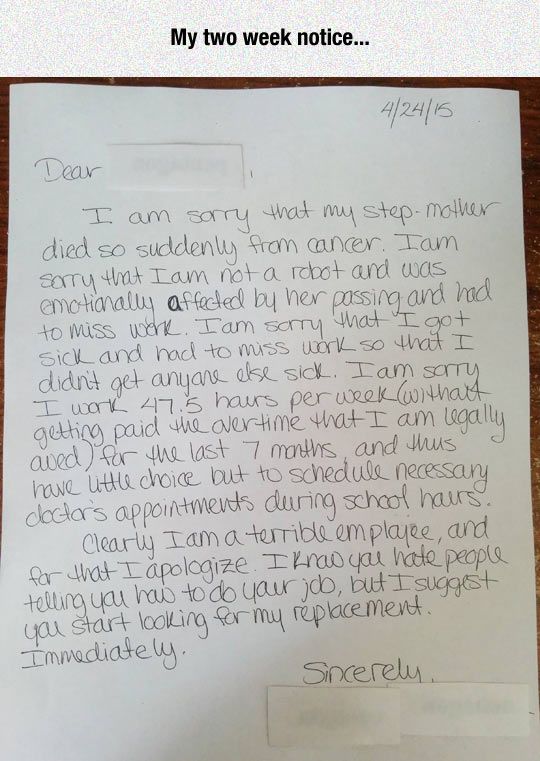 My two week notice...
4/24/15
Dear ,
I am sorry that my step-mother
died so suddenly from cancer. I am
sorry that I am not a robot and was
emotionally affected by her passing and had
to miss work. I am sorry that I got
sick and had to miss work so that I
didn't get anyone else sick. I am sorry
I work 47.5 hours per week (without
getting paid the overtime that I am legally
owed) for the last 7 months, and thus
have little choice but to schedule necessary
doctor's appointments during school hours.
Clearly I am a terrible employee, and
for that I apologize. I know you hate people
telling you how to do your job, but I suggest
you start looking for my replacement.
Immediately.
Sincerely,